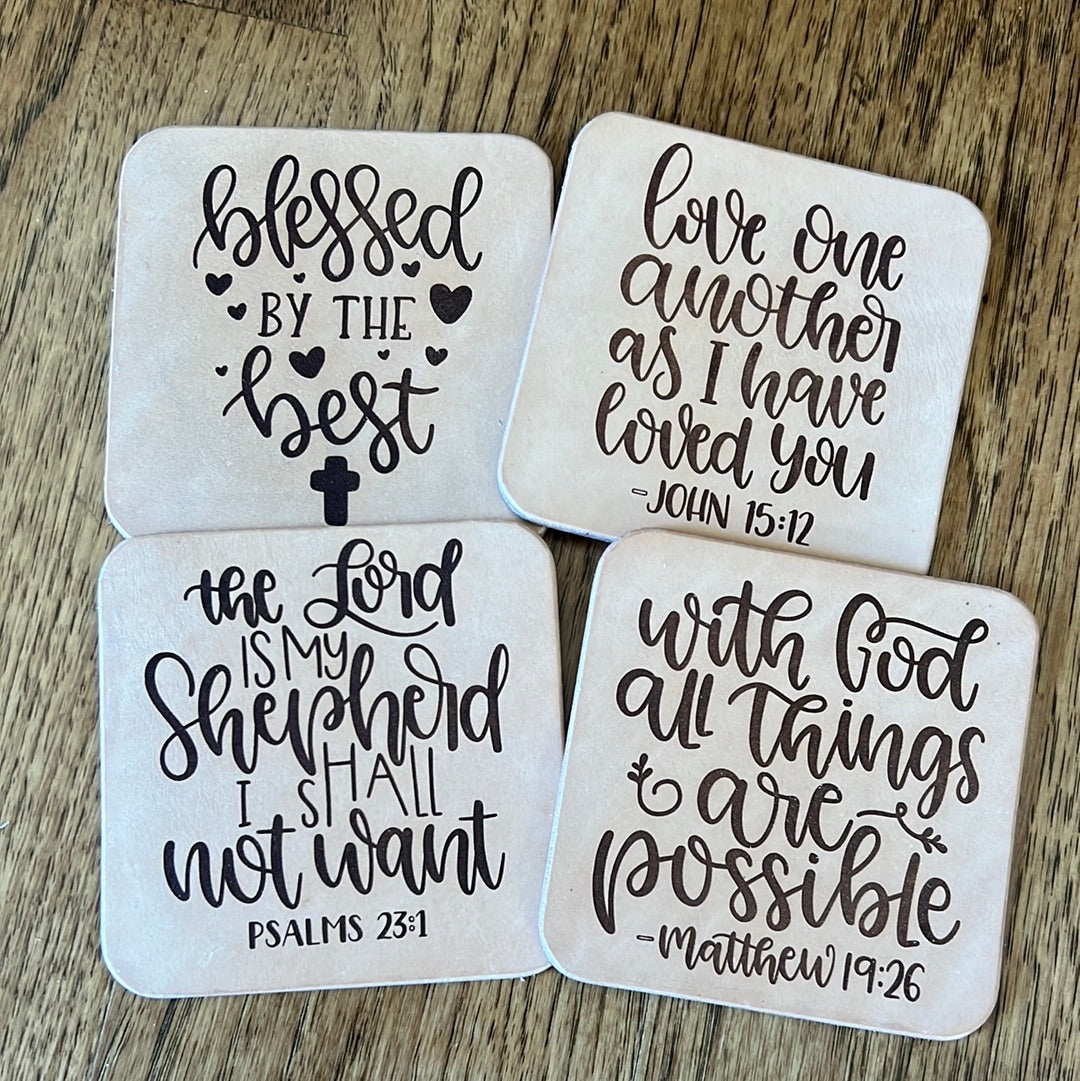 blessed
BY THE
best
love one
another
as I have
loved you
-JOHN 15:12
the Lord
IS MY
Shepherd
I SHALL
not want
PSALMS 23:1
with God
all things
are
possible
-Matthew 19:26